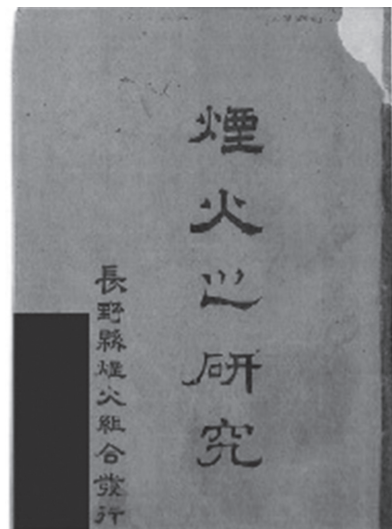 煙火之研究
長野縣煙火組合發行